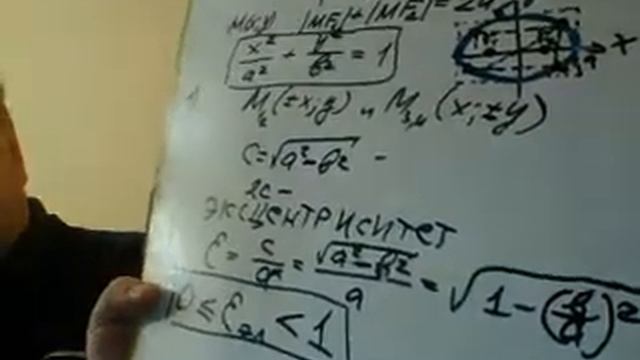 M(x,y) |MF₁|+|MF₂|=2a
x²/a² + y²/b² = 1
x
M₁,₂(±x;y) и M₃,₄(x;±y)
c=√(a²-b²) -
2c -
ЭКСЦЕНТРИСИТЕТ
ε = c/a = √(a²-b²)/a = √(1-(b/a)²)
0 ≤ ε эл < 1